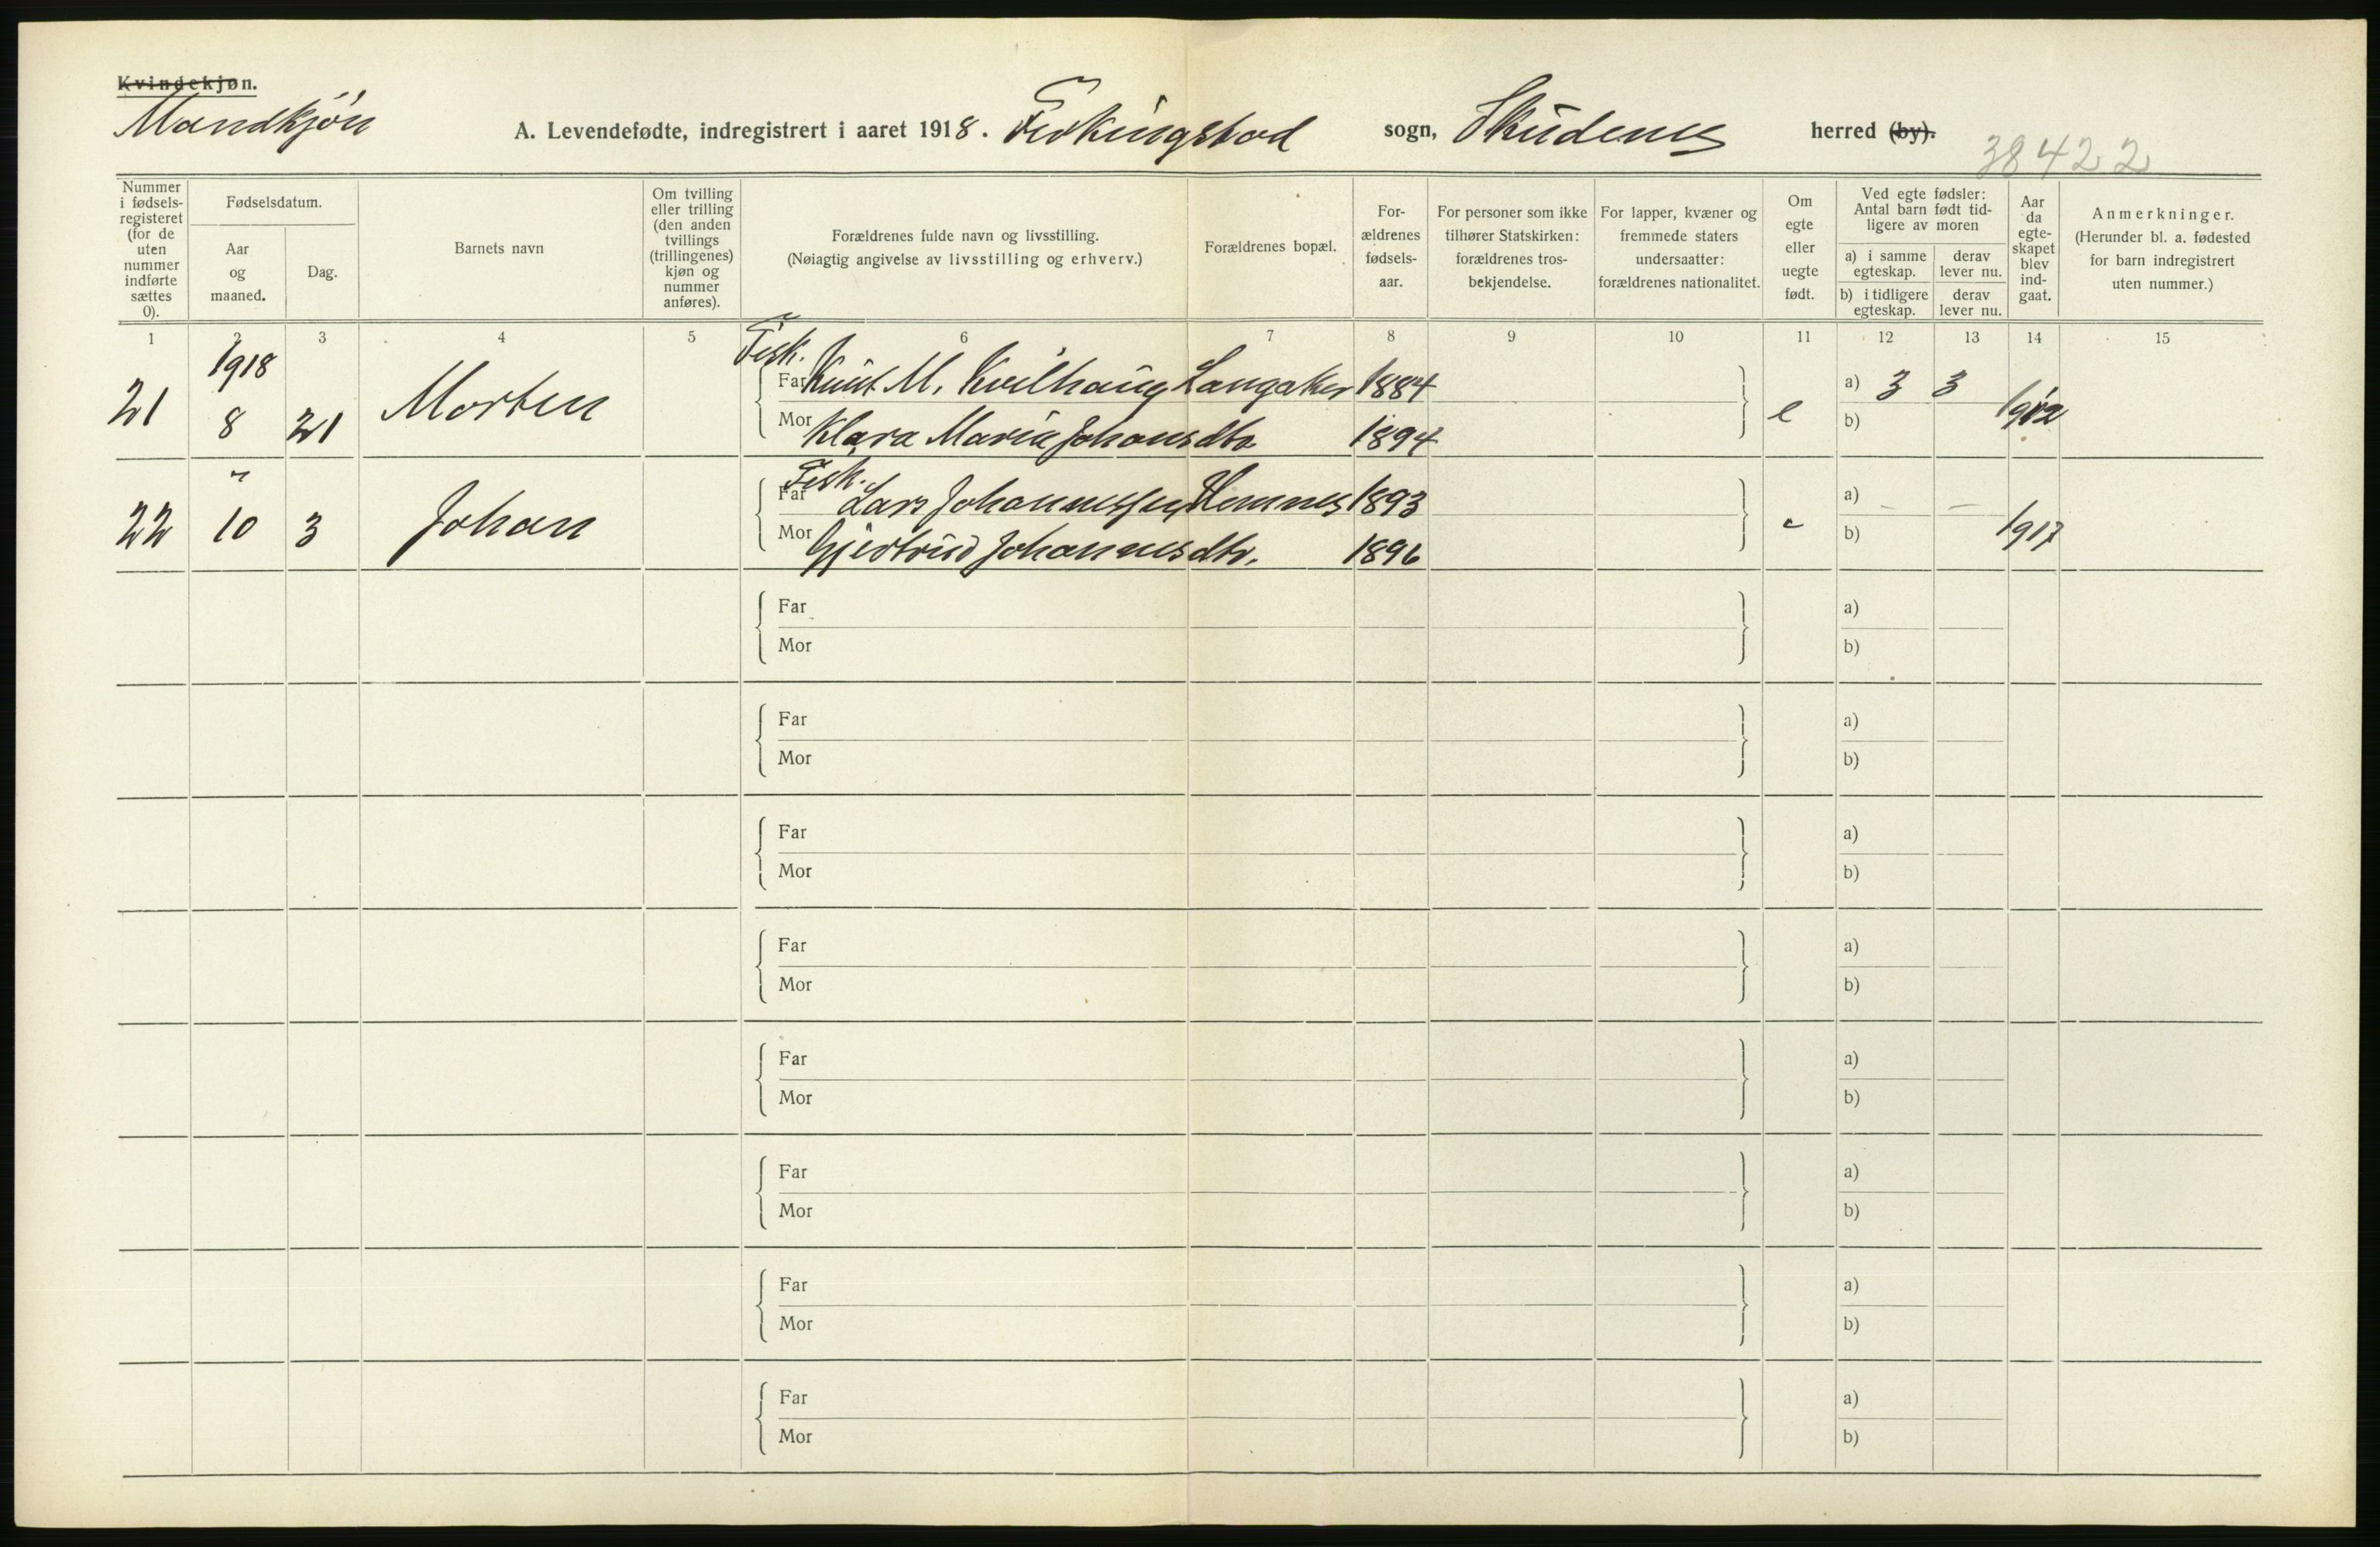 Kvindekjøn.
Mandkjøn
A. Levendefødte, indregistrert i aaret 1918. Ferkingstad sogn, Skudenes herred (by).
38422
Nummer i fødsels-registeret (for de uten nummer indførte sættes 0).
Fødselsdatum.
Aar og maaned.
Dag.
Barnets navn
Om tvilling eller trilling (den anden tvillings (trillingenes) kjøn og nummer anføres).
Forældrenes fulde navn og livsstilling.
(Nøiagtig angivelse av livsstilling og erhverv.)
Forældrenes bopæl.
For-ældrenes fødsels-aar.
For personer som ikke tilhører Statskirken: forældrenes tros-bekjendelse.
For lapper, kvæner og fremmede staters undersaatter: forældrenes nationalitet.
Om egte eller uegte født.
Ved egte fødsler: Antal barn født tid-ligere av moren
a) i samme egteskap.
derav lever nu.
b) i tidligere egteskap.
derav lever nu.
Aar da egte-skapet blev ind-gaat.
Anmerkninger.
(Herunder bl. a. fødested for barn indregistrert uten nummer.)
1 2 3 4 5 6 7 8 9 10 11 12 13 14 15
1918
Fisk.
21 8 21 Morten Far Knut M. Kvilhaug Langaker 1884 e a) 3 3 1912
Mor Klara Marie Johansdtr 1894 b)
"
Fisk.
22 10 3 Johan Far Lars Johannessen Hemnes 1893 " a) — — 1917
Mor Gjertrud Johannesdtr. 1896 b)
Far a)
Mor b)
Far a)
Mor b)
Far a)
Mor b)
Far a)
Mor b)
Far a)
Mor b)
Far a)
Mor b)
Far a)
Mor b)
Far a)
Mor b)